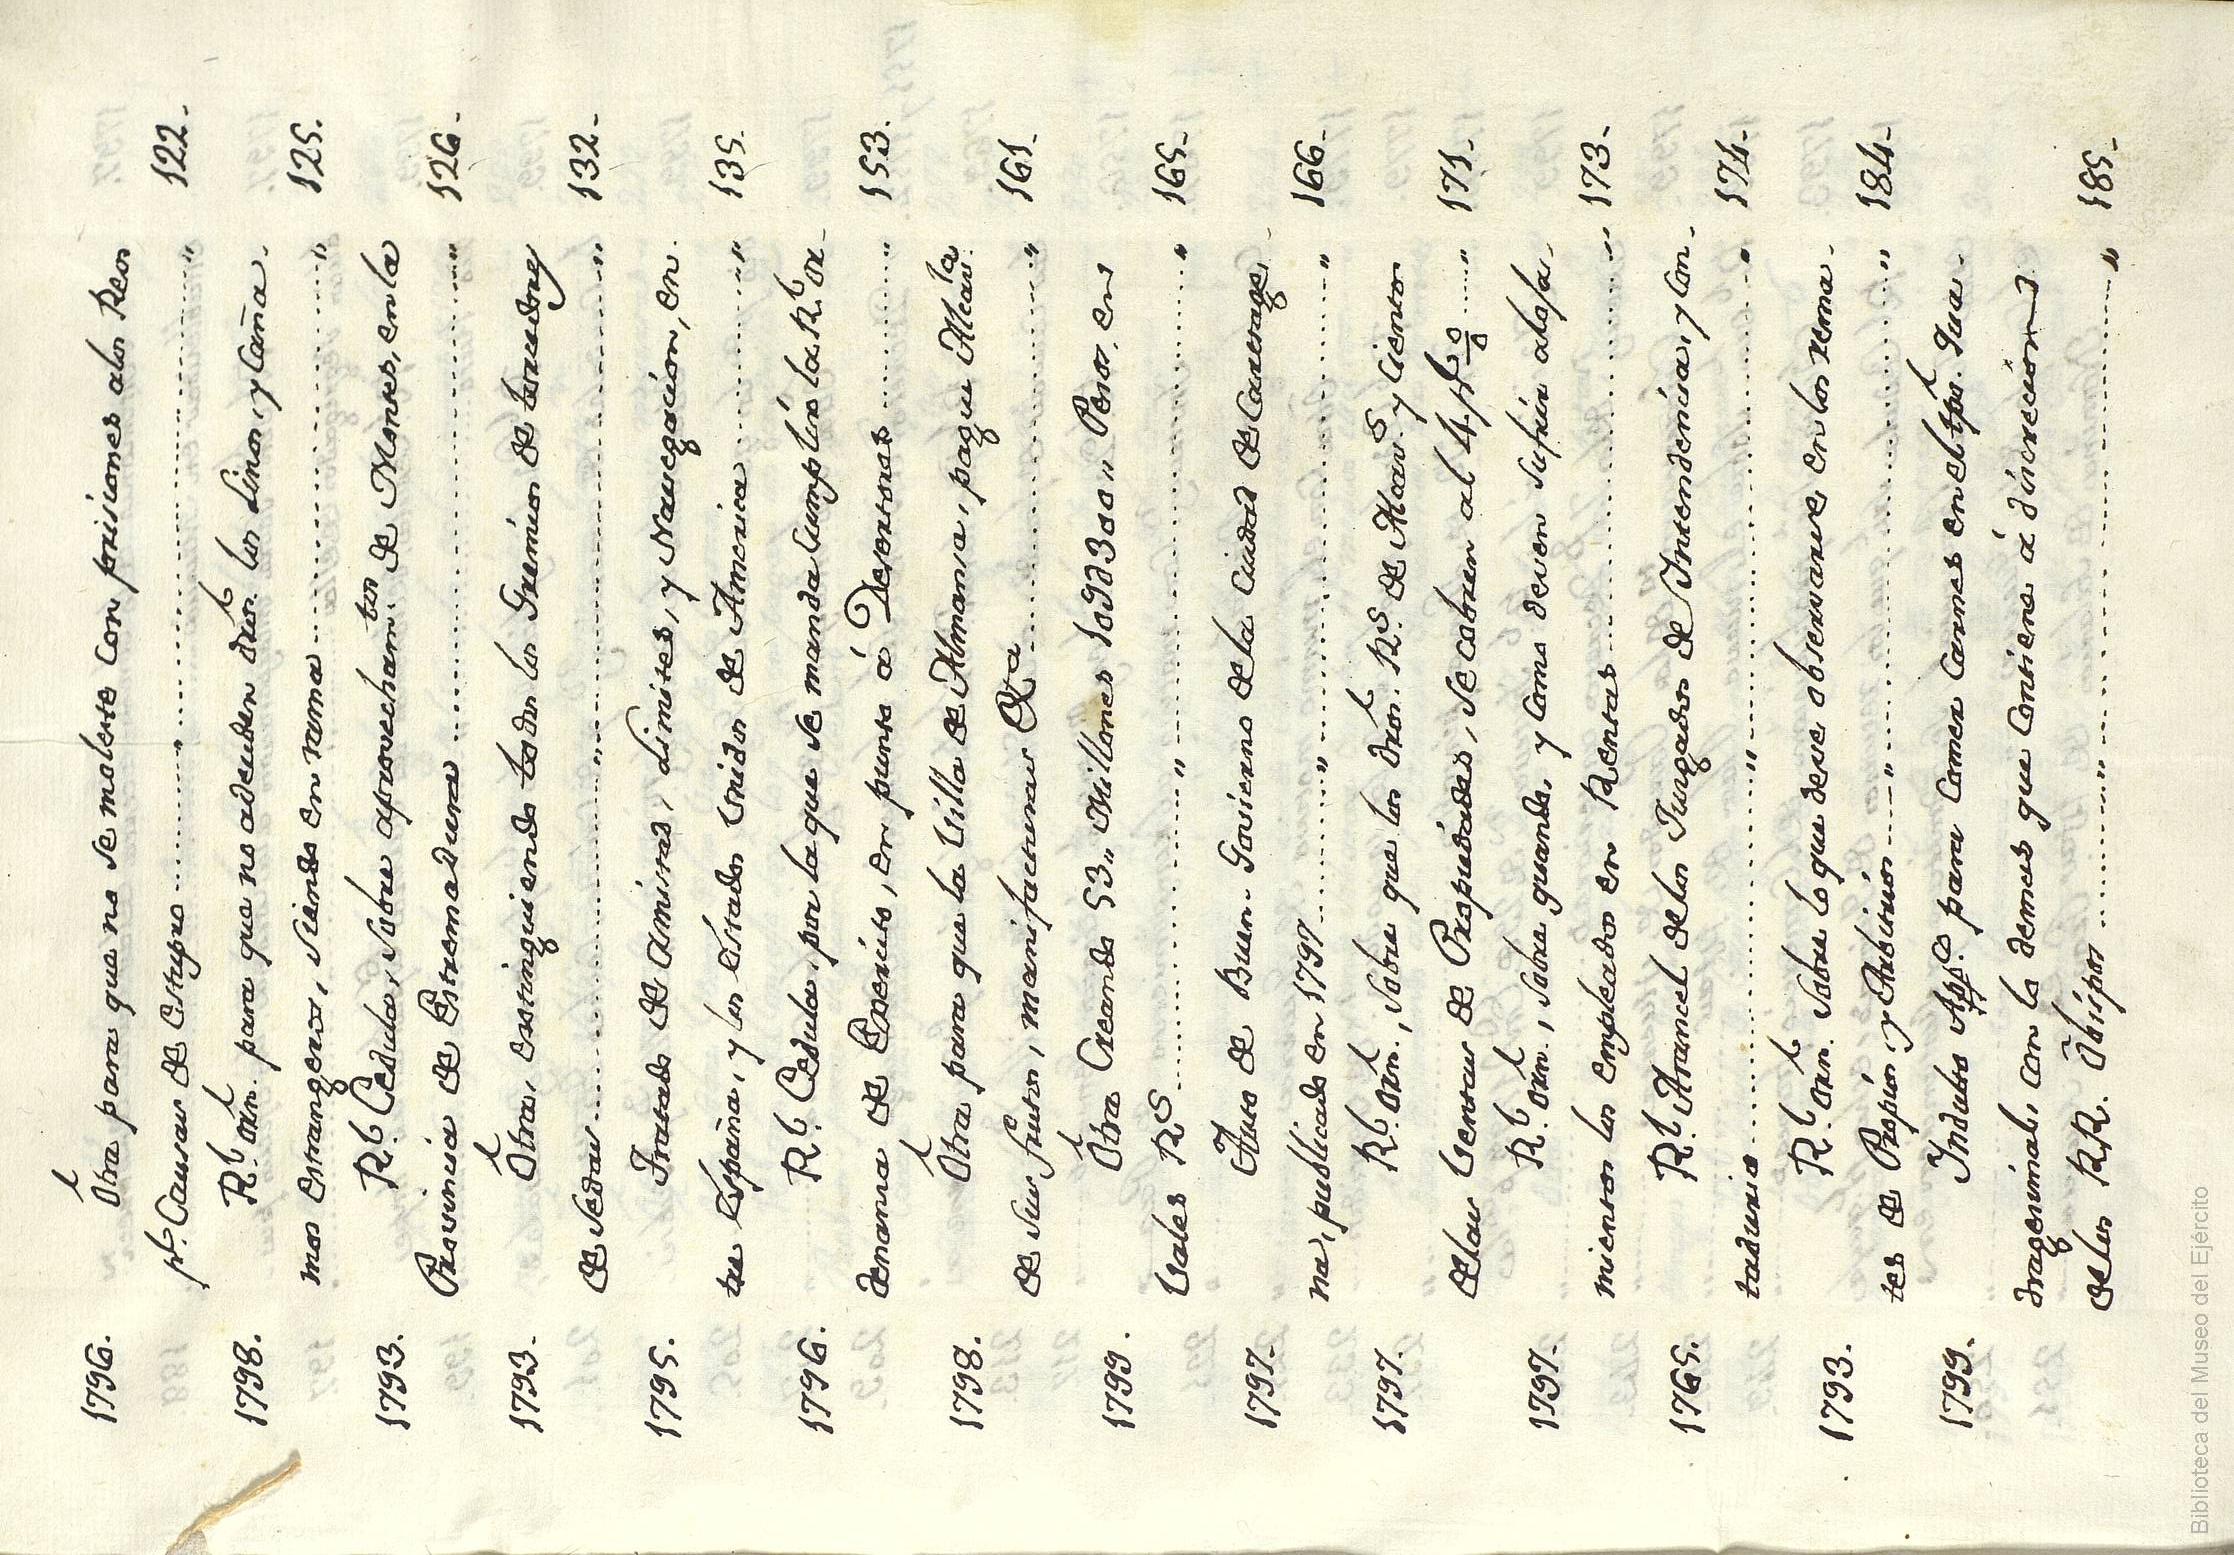 1796. Otra para que no se moleste con prisiones a los Reos
pr. Causas de estupro ........ " ........ " 122.-
1798. Rl. orn. para que no adeuden dros. los Linos, y Caña-
mos estrangeros, siendo en rama ........ " 125.
1793. Rl. Cedula, sobre aprovecham.tos de Montes, en la
Provincia de Estremadura ........ " 126.-
1793.- Otra, estinguiendo todos los Gremios de torcedores
de sedas ........ " ........ " 132.-
1795. Tratado de Amistad, Limites, y Navegacion, en-
tre España, y los Estados Unidos de America ........ " 135.-
1796. Rl. Cedula, por la que se manda Cumplir la Rl. Or-
denanza de Exercito, en punto á Desertores ........ " 153.
1798. Otra para que la Villa de Almansa, pague Alcav.la
de sus frutos, manifacturas &ra ........ " 161-
1799. Otra Creando 53" Millones 109D300" Pesos, en
Vales Rs ........ " ........ " 165-
1797- Auto de Buen- Govierno de la Ciudad de Cartage-
na, publicado en 1797 ........ " ........ " 166-
1797. Rl. Orn., sobre que los dros. Rs. de Alcav.s y Cientos
de las Ventas de Propiedades, se cobren al 4 p% ........ " 171-
1797- Rl. orn., sobre quando, y como deven sufrir alofa-
mientos los empleados en Rentas ........ " 173-
1765. Rl. Arancel de los Juzgados de Intendencia, y Con-
taduria ........ " ........ " 174-
1793. Rl. orn. sobre lo que deve observarse en los rema-
tes de Propios, y Arbitrios ........ " ........ " 184-
1799. Indulto App.co para Comer Carnes en el tpo. Qua-
dragesimal, con lo demas que Contiene á discrecion
de los RR. Obispos ........ " ........ " 185-
Biblioteca del Museo del Ejército